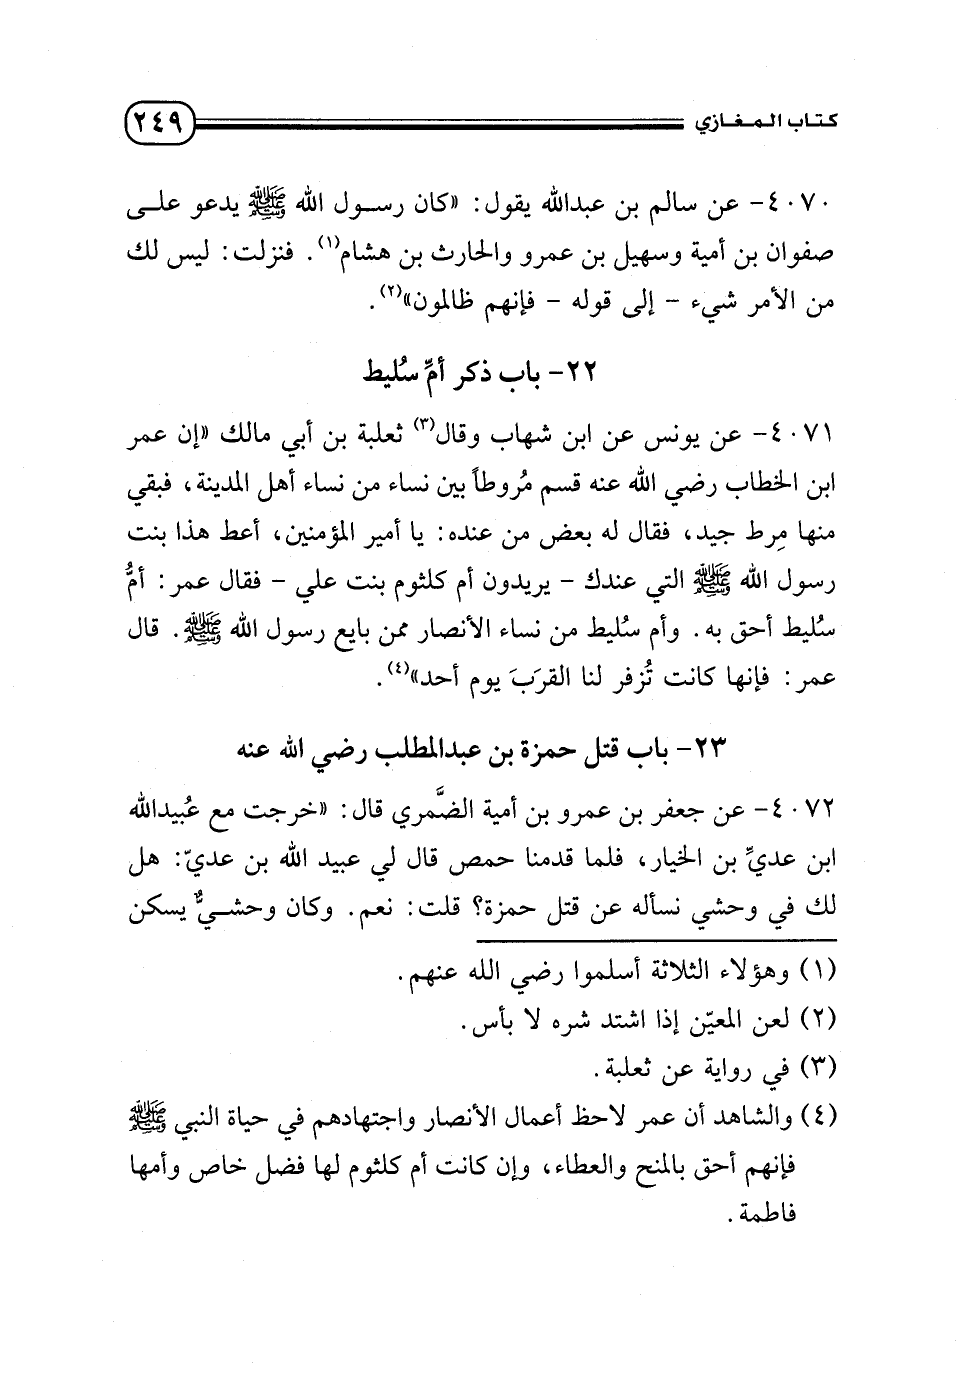 كتاب المغازي ٢٤٩
٤٠٧٠- عن سالم بن عبدالله يقول: «كان رسول الله ﷺ يدعو على
صفوان بن أمية وسهيل بن عمرو والحارث بن هشام(١). فنزلت: ليس لك
من الأمر شيء - إلى قوله - فإنهم ظالمون»(٢).
٢٢- باب ذكر أمِّ سُليط
٤٠٧١- عن يونس عن ابن شهاب وقال(٣) ثعلبة بن أبي مالك «إن عمر
ابن الخطاب رضي الله عنه قسم مُروطاً بين نساء من نساء أهل المدينة، فبقي
منها مِرط جيد، فقال له بعض من عنده: يا أمير المؤمنين، أعط هذا بنت
رسول الله ﷺ التي عندك - يريدون أم كلثوم بنت علي - فقال عمر: أمُّ
سُليط أحق به. وأم سُليط من نساء الأنصار ممن بايع رسول الله ﷺ. قال
عمر: فإنها كانت تُزفر لنا القرَبَ يوم أحد»(٤).
٢٣- باب قتل حمزة بن عبدالمطلب رضي الله عنه
٤٠٧٢- عن جعفر بن عمرو بن أمية الضَّمري قال: «خرجت مع عُبيدالله
ابن عديِّ بن الخيار، فلما قدمنا حمص قال لي عبيد الله بن عديّ: هل
لك في وحشي نسأله عن قتل حمزة؟ قلت: نعم. وكان وحشيٌّ يسكن
(١) وهؤلاء الثلاثة أسلموا رضي الله عنهم.
(٢) لعن المعيّن إذا اشتد شره لا بأس.
(٣) في رواية عن ثعلبة.
(٤) والشاهد أن عمر لاحظ أعمال الأنصار واجتهادهم في حياة النبي ﷺ
فإنهم أحق بالمنح والعطاء، وإن كانت أم كلثوم لها فضل خاص وأمها
فاطمة.